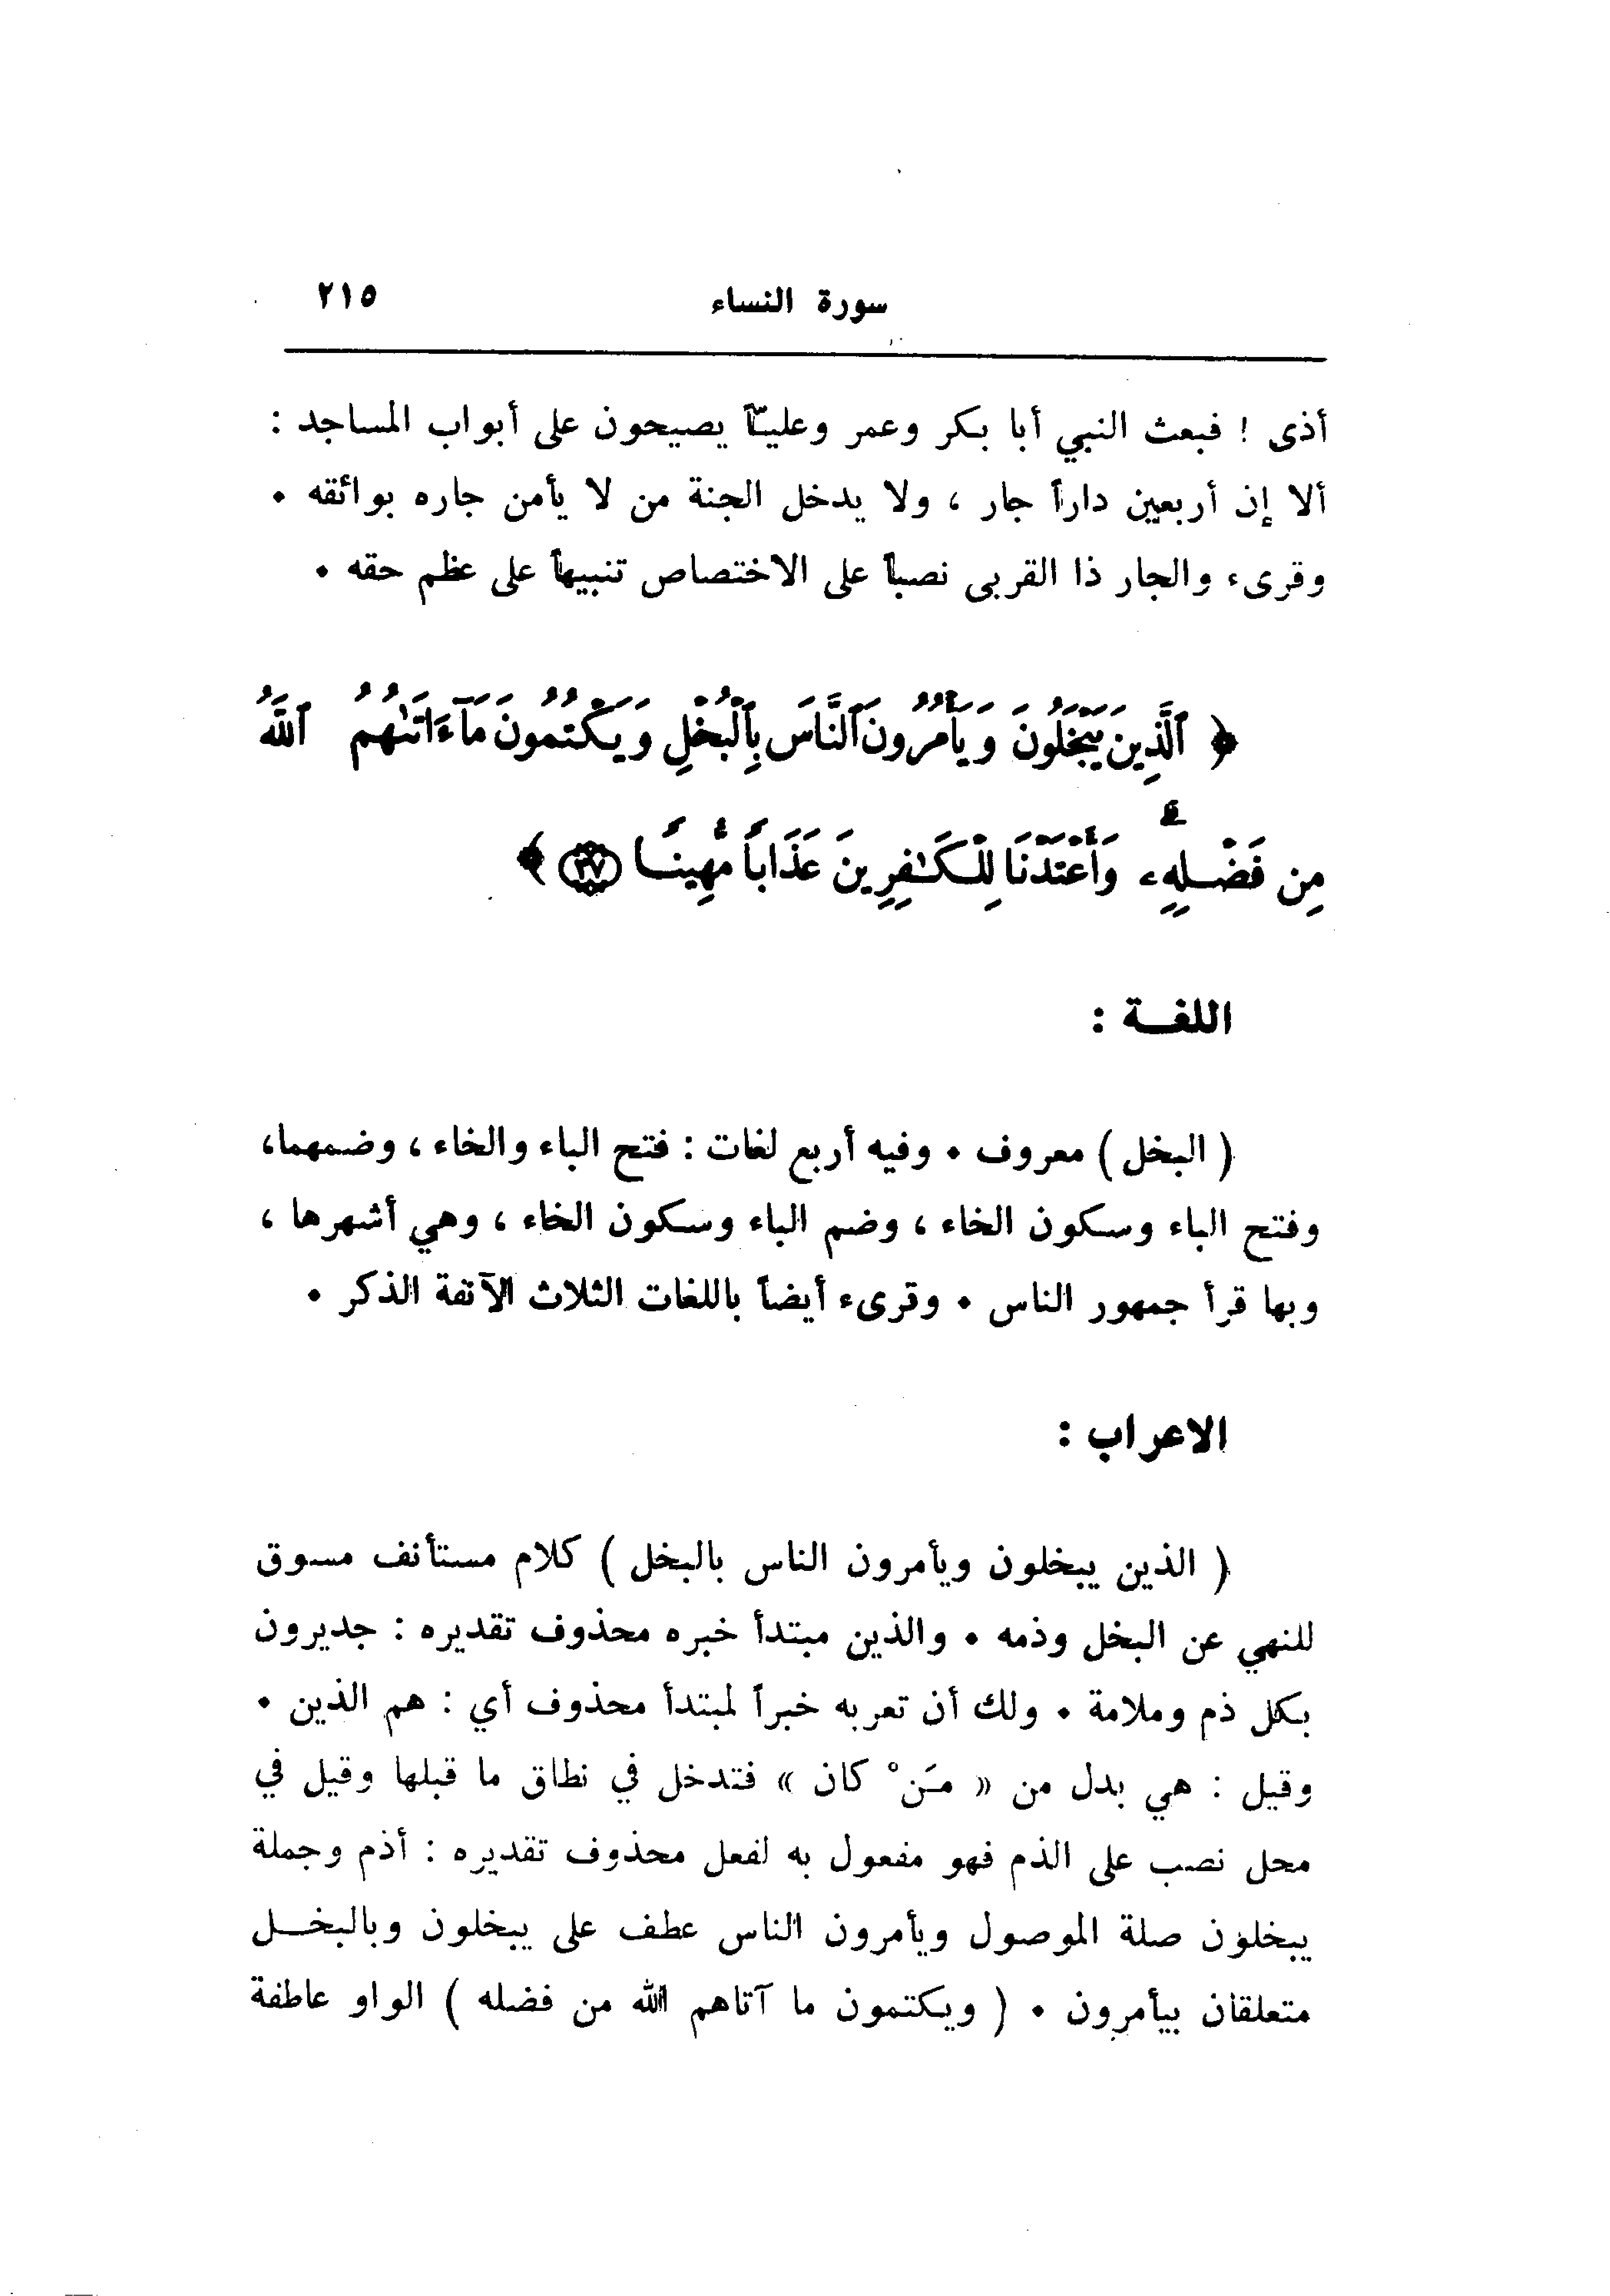 سورة النساء ٢١٥
أذى ! فبعث النبي أبا بكر وعمر وعليـّاً يصيحون على أبواب المساجد :
ألا إن أربعين داراً جار ، ولا يدخل الجنة من لا يأمن جاره بوائقه .
وقرىء والجار ذا القربى نصباً على الاختصاص تنبيهاً على عظم حقه .
﴿ ٱلَّذِينَ يَبْخَلُونَ وَيَأْمُرُونَ ٱلنَّاسَ بِٱلْبُخْلِ وَيَكْتُمُونَ مَآ ءَاتَىٰهُمُ ٱللَّهُ
مِن فَضْلِهِۦ ۗ وَأَعْتَدْنَا لِلْكَـٰفِرِينَ عَذَابًا مُّهِينًا ٣٧ ﴾
اللغـة :
( البخل ) معروف . وفيه أربع لغات : فتح الباء والخاء ، وضمهما،
وفتح الباء وسكون الخاء ، وضم الباء وسكون الخاء ، وهي أشهرها ،
وبها قرأ جمهور الناس . وقرىء أيضاً باللغات الثلاث الآنفة الذكر .
الاعراب :
( الذين يبخلون ويأمرون الناس بالبخل ) كلام مستأنف مسوق
للنهي عن البخل وذمه . والذين مبتدأ خبره محذوف تقديره : جديرون
بكل ذم وملامة . ولك أن تعربه خبراً لمبتدأ محذوف أي : هم الذين .
وقيل : هي بدل من « مَنْ كان » فتدخل في نطاق ما قبلها وقيل في
محل نصب على الذم فهو مفعول به لفعل محذوف تقديره : أذم وجملة
يبخلون صلة الموصول ويأمرون الناس عطف على يبخلون وبالبخـل
متعلقان بيأمرون . ( ويكتمون ما آتاهم الله من فضله ) الواو عاطفة